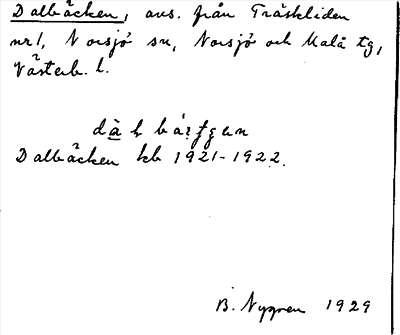 Dalbäcken, avs. från Träskliden
nr 1, Norsjö sn, Norsjö och Malå tg,
Västerb. l.
Dalbäcken kb 1921-1922.
B. Nygren 1929